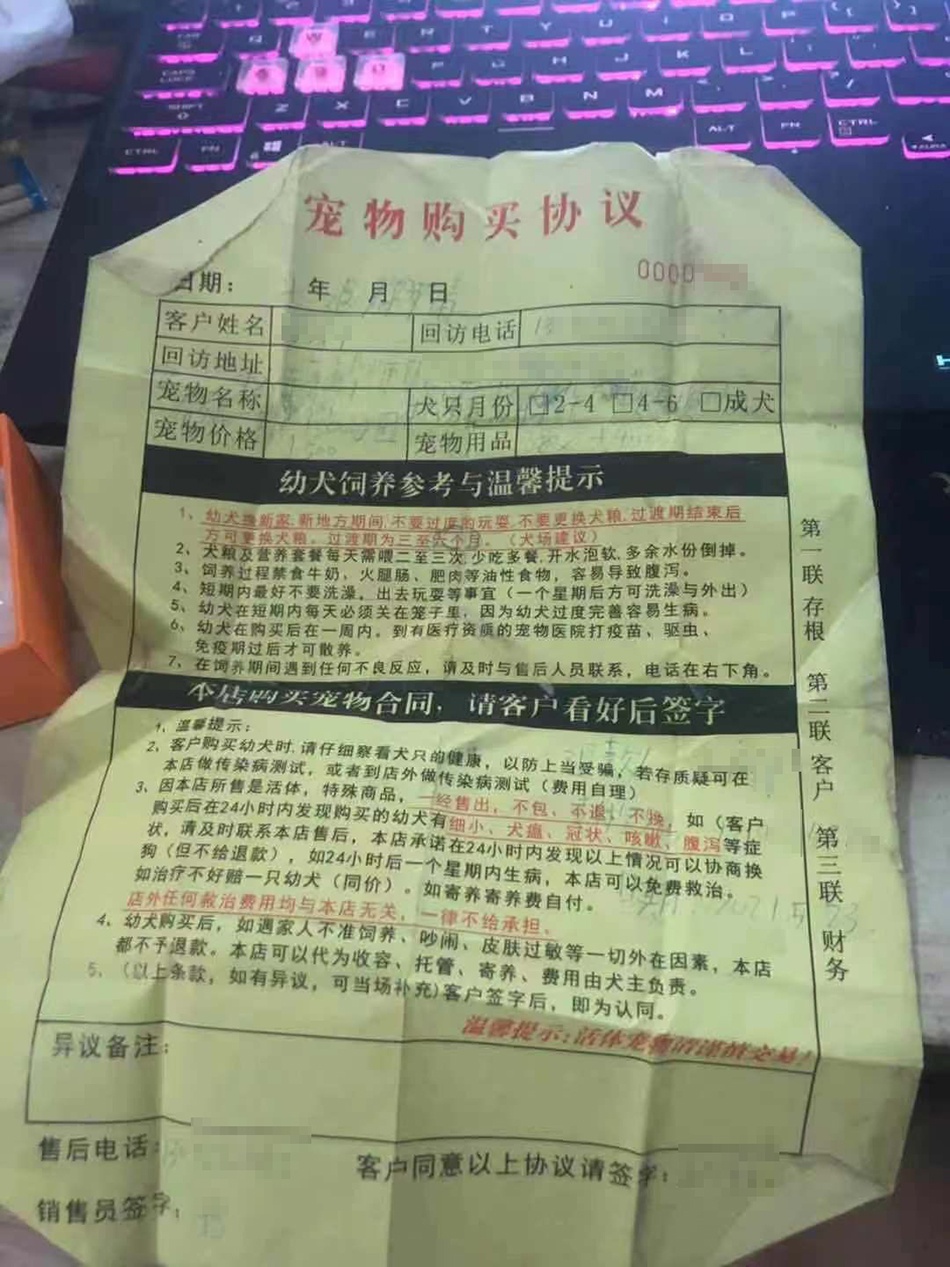 宠物购买协议
0000
日期： 年 5 月 日
客户姓名 回访电话 13
回访地址
宠物名称 犬只月份 □2-4 □4-6 □成犬
宠物价格 1500 宠物用品
幼犬饲养参考与温馨提示
1、幼犬换新家,新地方期间,不要过度的玩耍,不要更换犬粮,过渡期结束后
方可更换犬粮。过渡期为三至六个月。（犬场建议）
2、犬粮及营养套餐每天需喂二至三次,少吃多餐,开水泡软,多余水份倒掉。
3、饲养过程禁食牛奶，火腿肠、肥肉等油性食物，容易导致腹泻。
4、短期内最好不要洗澡，出去玩耍等事宜（一个星期后方可洗澡与外出）
5、幼犬在短期内每天必须关在笼子里，因为幼犬过度完善容易生病。
6、幼犬在购买后在一周内，到有医疗资质的宠物医院打疫苗、驱虫、
免疫期过后才可散养。
7、在饲养期间遇到任何不良反应，请及时与售后人员联系，电话在右下角。
本店购买宠物合同，请客户看好后签字
1，温馨提示：
2、客户购买幼犬时,请仔细察看犬只的健康，以防上当受骗，若存质疑可在
本店做传染病测试，或者到店外做传染病测试（费用自理）
3、因本店所售是活体，特殊商品，一经售出，不包、不退、不换，如（客户
购买后在24小时内发现购买的幼犬有细小、犬瘟、冠状、咳嗽、腹泻等症
状，请及时联系本店售后，本店承诺在24小时内发现以上情况可以协商换
狗（但不给退款），如24小时后一个星期内生病，本店可以免费救治。
如治疗不好赔一只幼犬（同价）。如寄养寄养费自付。
店外任何救治费用均与本店无关，一律不给承担。
4、幼犬购买后，如遇家人不准饲养、吵闹、皮肤过敏等一切外在因素，本店
都不予退款。本店可以代为收容、托管、寄养、费用由犬主负责。
5、（以上条款，如有异议，可当场补充)客户签字后，即为认同。
温馨提示：活体宠物请谨慎交易！
异议备注：
售后电话：
客户同意以上协议请签字：
销售员签字：
第一联 存根 第二联 客户 第三联 财务
CAPS LOCK
SHIFT
Z X C V B N M
CTRL FN ALT ALT FN CTRL